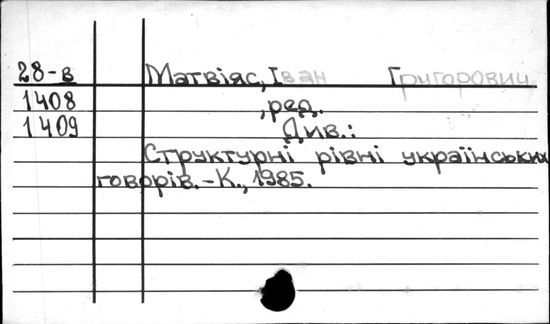 28-в Матвіяс, Іван Григорович
1408 ,ред.
1409 Див.:
Структурні рівні українських
говорів.-К., 1985.